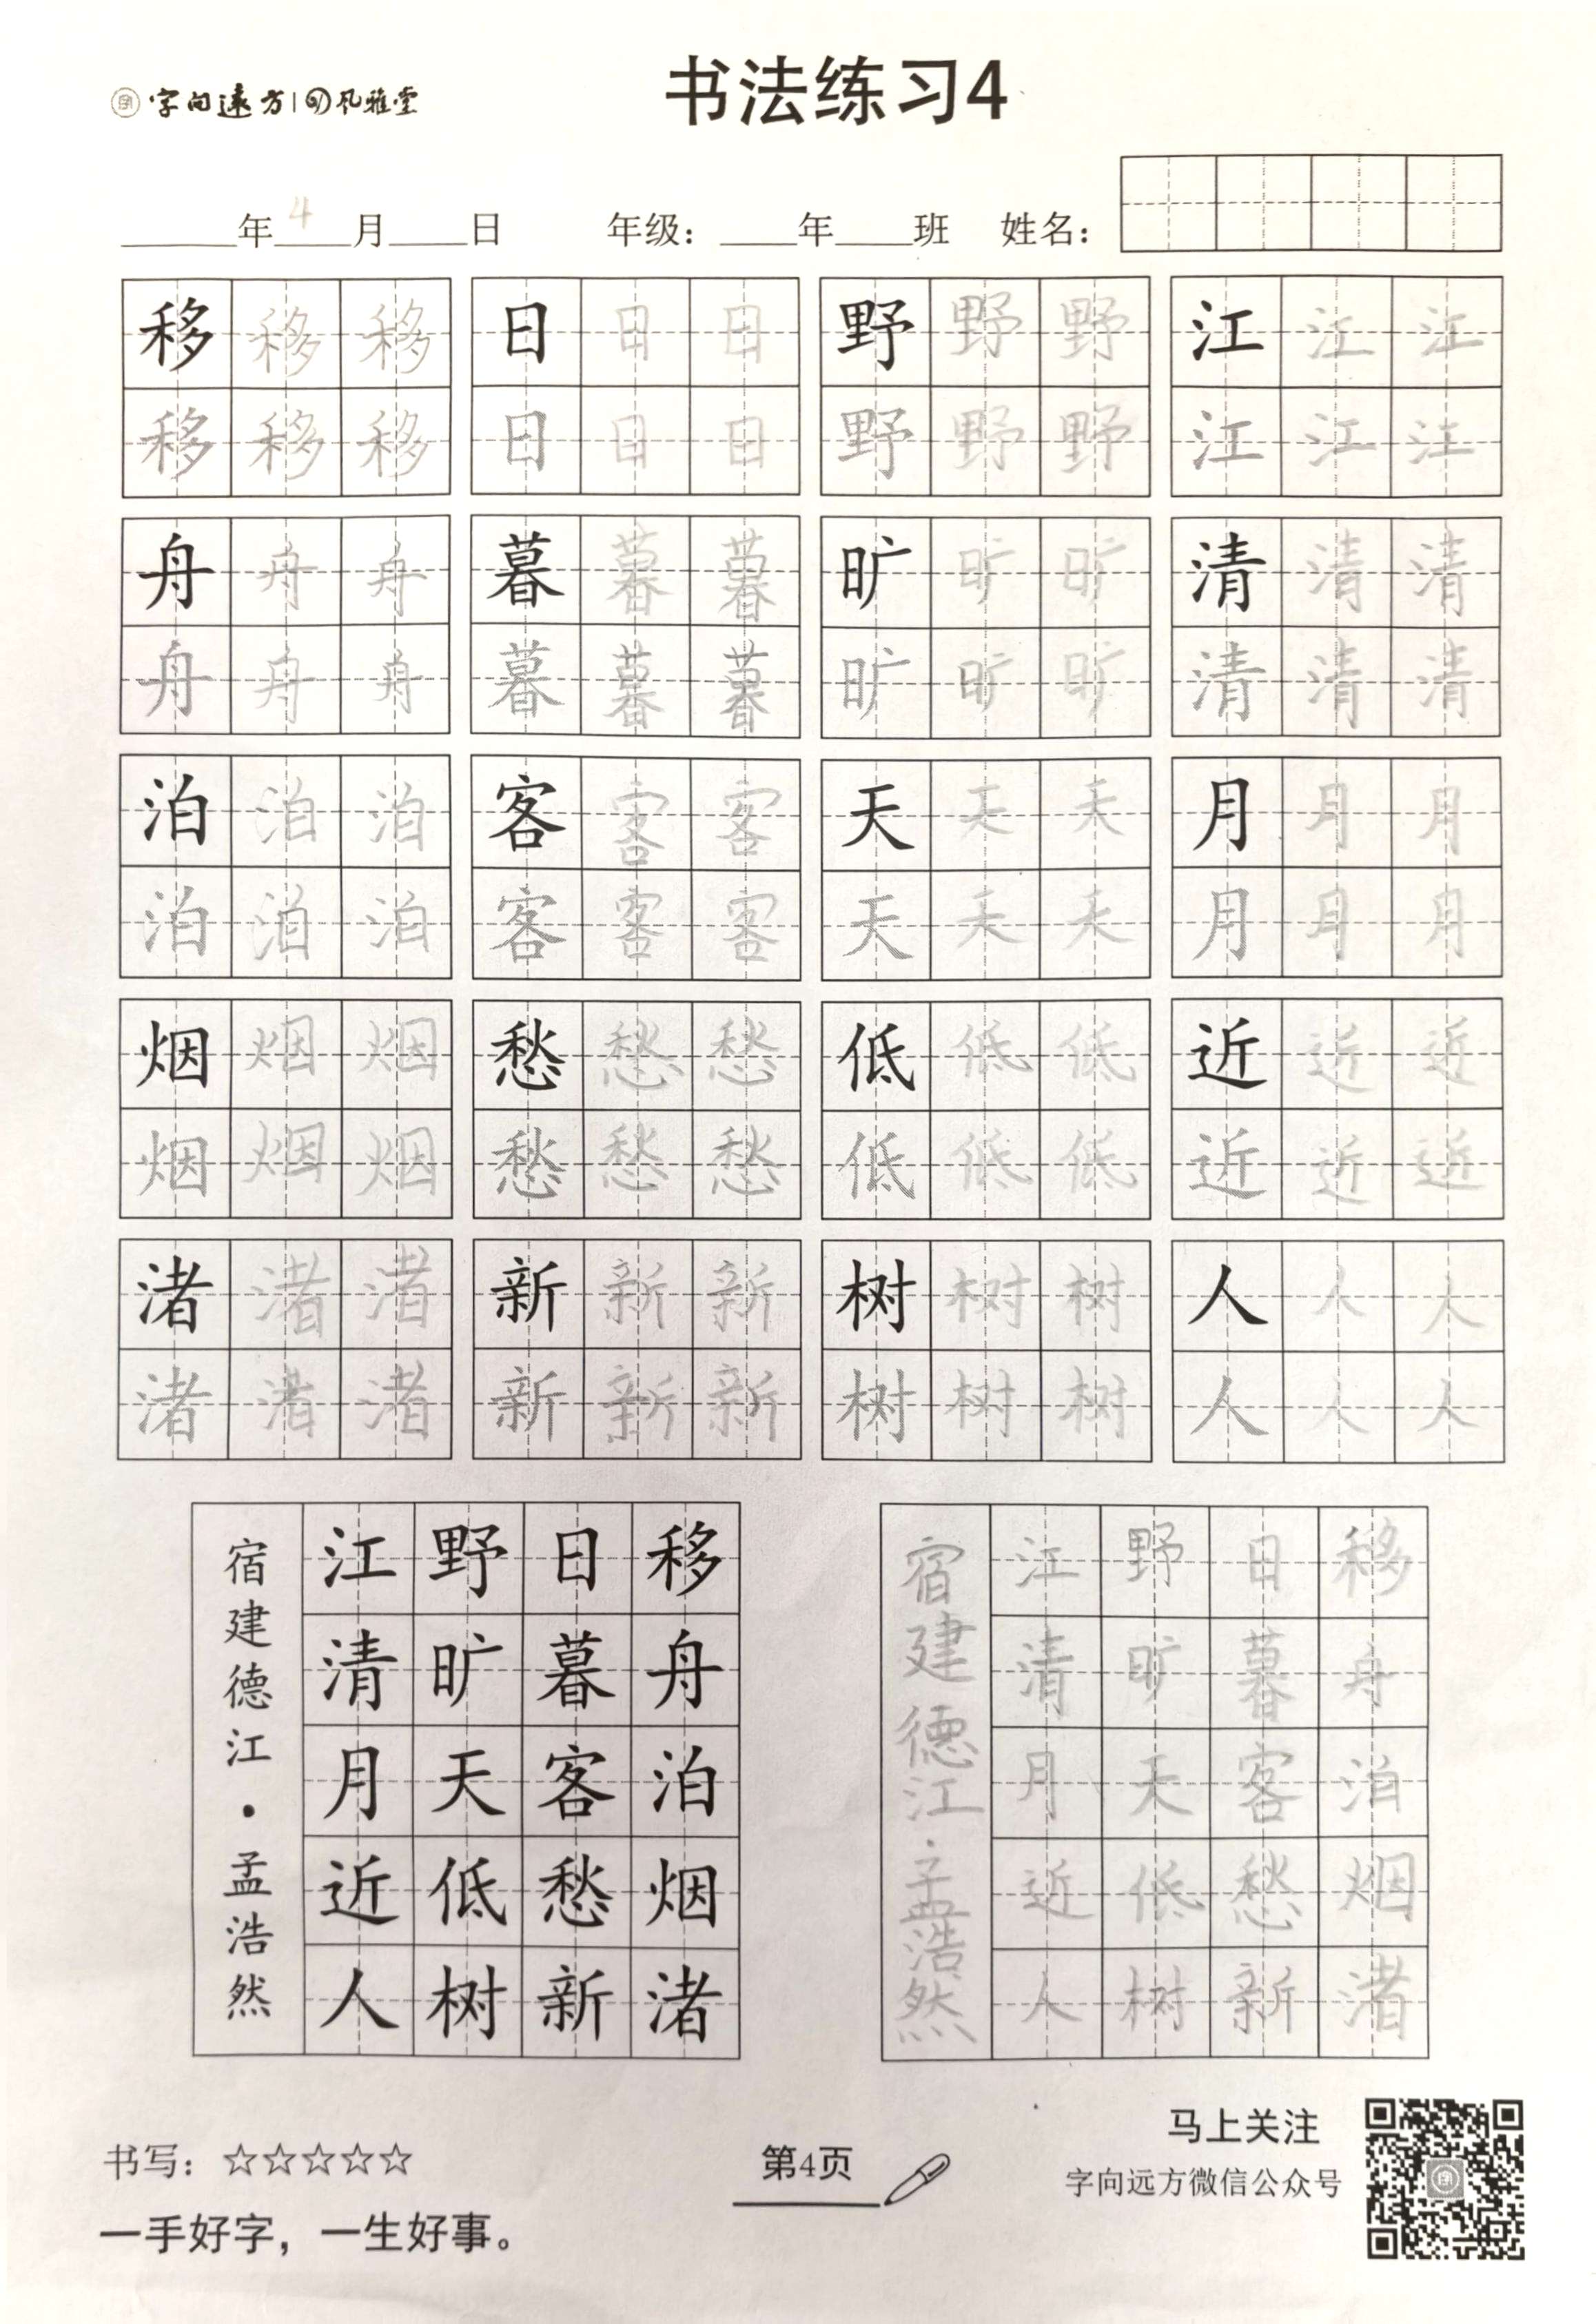 字向遠方 风雅堂
书法练习4
年4月 日 年级： 年 班 姓名：
移移移 日日日 野野野 江江江
移移移 日日日 野野野 江江江
舟舟舟 暮暮暮 旷旷旷 清清清
舟舟舟 暮暮暮 旷旷旷 清清清
泊泊泊 客客客 天天天 月月月
泊泊泊 客客客 天天天 月月月
烟烟烟 愁愁愁 低低低 近近近
烟烟烟 愁愁愁 低低低 近近近
渚渚渚 新新新 树树树 人人人
渚渚渚 新新新 树树树 人人人
移舟泊烟渚
日暮客愁新
野旷天低树
江清月近人
宿建德江·孟浩然
移舟泊烟渚
日暮客愁新
野旷天低树
江清月近人
宿建德江·孟浩然
书写：☆☆☆☆☆
一手好字，一生好事。
第4页
马上关注
字向远方微信公众号